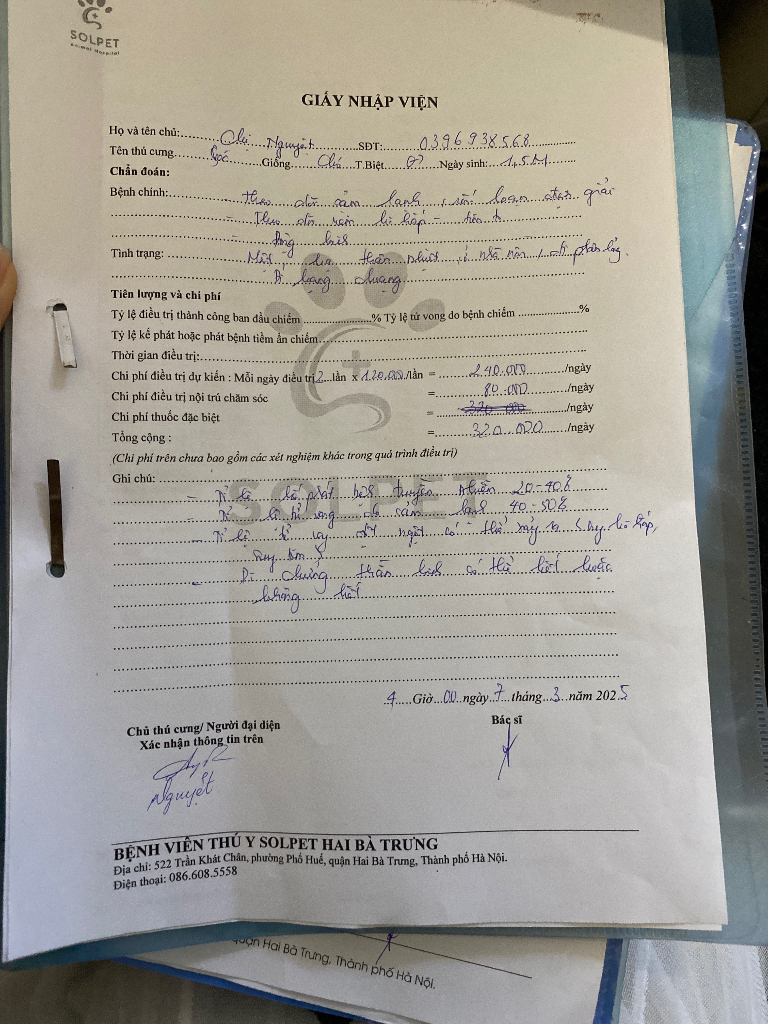 SOLPET
Animal Hospital
GIẤY NHẬP VIỆN
Họ và tên chủ: Chị Nguyệt SĐT: 0396938568
Tên thú cưng Giống Chó T.Biệt Ngày sinh: 1,5M
Chẩn đoán:
Bệnh chính: theo dõi cảm lạnh, rối loạn
- Theo dõi hô hấp -
-
Tình trạng: Mệt thân nhiệt nôn
Tiên lượng và chi phí
Tỷ lệ điều trị thành công ban đầu chiếm % Tỷ lệ tử vong do bệnh chiếm %
Tỷ lệ kế phát hoặc phát bệnh tiềm ẩn chiếm
Thời gian điều trị:
Chi phí điều trị dự kiến : Mỗi ngày điều trị 2 lần x 120.000/lần = 240.000 /ngày
Chi phí điều trị nội trú chăm sóc = 80.000 /ngày
Chi phí thuốc đặc biệt = 320 000 /ngày
Tổng cộng : = 320.000 /ngày
(Chi phí trên chưa bao gồm các xét nghiệm khác trong quá trình điều trị)
Ghi chú:
- Tỉ lệ phát bệnh truyền nhiễm 20-40%
- Tỉ lệ tử vong do cảm lạnh 40-50%
- Tỉ lệ đột ngột có thể xảy ra suy hô hấp,
suy tim
- Di chứng thần kinh có thể hết hoặc
không hết
SOLPET
4 Giờ 00 ngày 7 tháng 3 năm 2025
Chủ thú cưng/ Người đại diện Bác sĩ
Xác nhận thông tin trên
Nguyệt
BỆNH VIỆN THÚ Y SOLPET HAI BÀ TRƯNG
Địa chỉ: 522 Trần Khát Chân, phường Phố Huế, quận Hai Bà Trưng, Thành phố Hà Nội.
Điện thoại: 086.608.5558
quận Hai Bà Trưng, Thành phố Hà Nội.